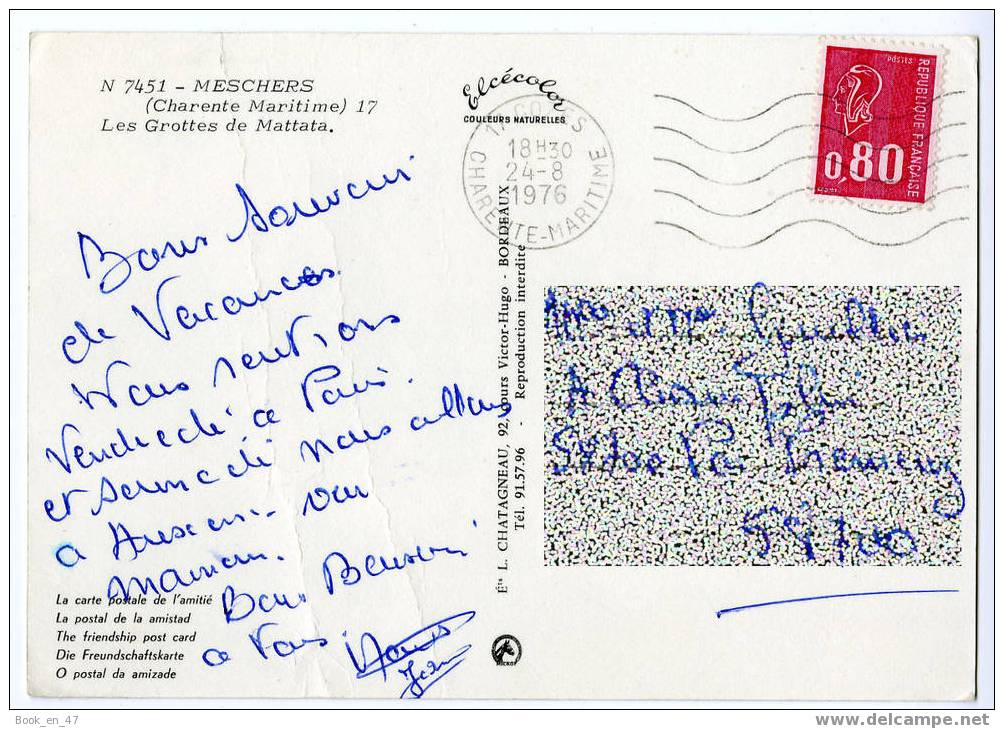 N 7451 - MESCHERS
(Charente Maritime) 17
Les Grottes de Mattata.
Elcécolor
COULEURS NATURELLES
18H30
24-8
1976
CHARENTE-MARITIME
POSTES
REPUBLIQUE FRANÇAISE
0,80
Bons Souvenir
de Vacances
Nous rentrons
Vendredi a Paris.
et samedi nous allons
a voir
maman.
Bons Baisers
a Vous
Ets L. CHATAGNEAU, 92, Cours Victor-Hugo - BORDEAUX
Tél. 91.57.96 - Reproduction interdite
58700
La carte postale de l'amitié
La postal de la amistad
The friendship post card
Die Freundschaftskarte
O postal da amizade
Book_en_47
www.delcampe.net